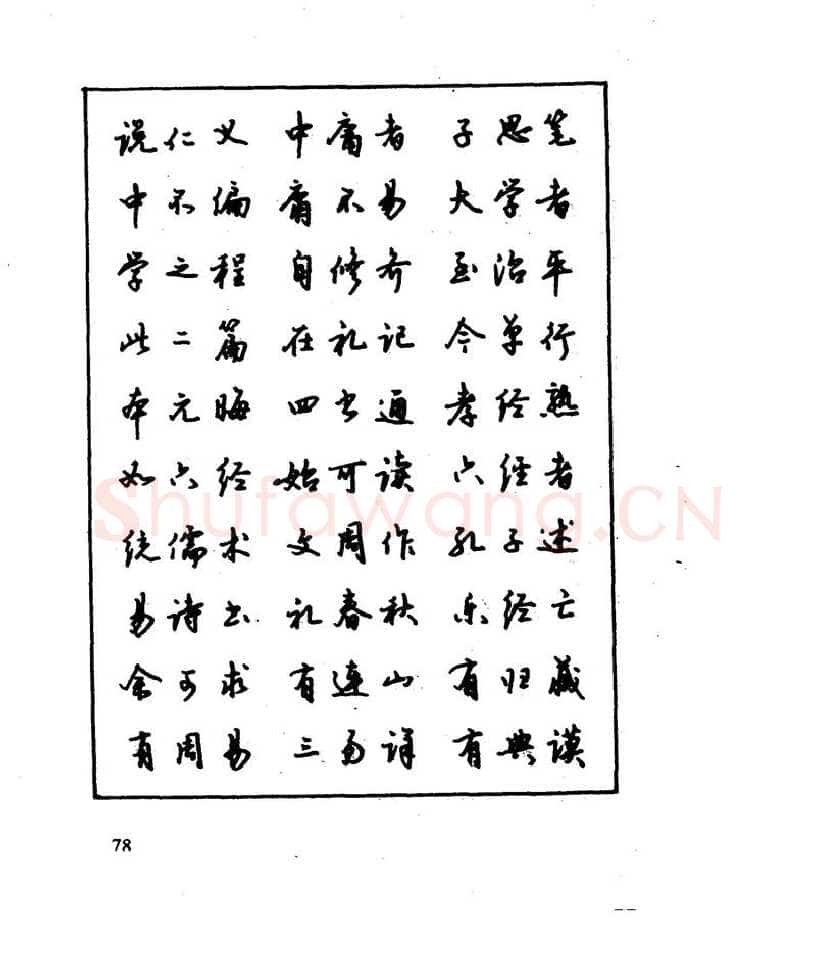 说仁义 中庸者 子思笔
中不偏 庸不易 大学者
学之程 自修齐 至治平
此二篇 在礼记 今单行
本元晦 四书通 孝经熟
如六经 始可读 六经者
统儒术 文周作 孔子述
易诗书 礼春秋 乐经亡
余可求 有连山 有归藏
有周易 三易详 有典谟
78
Shufawang.CN